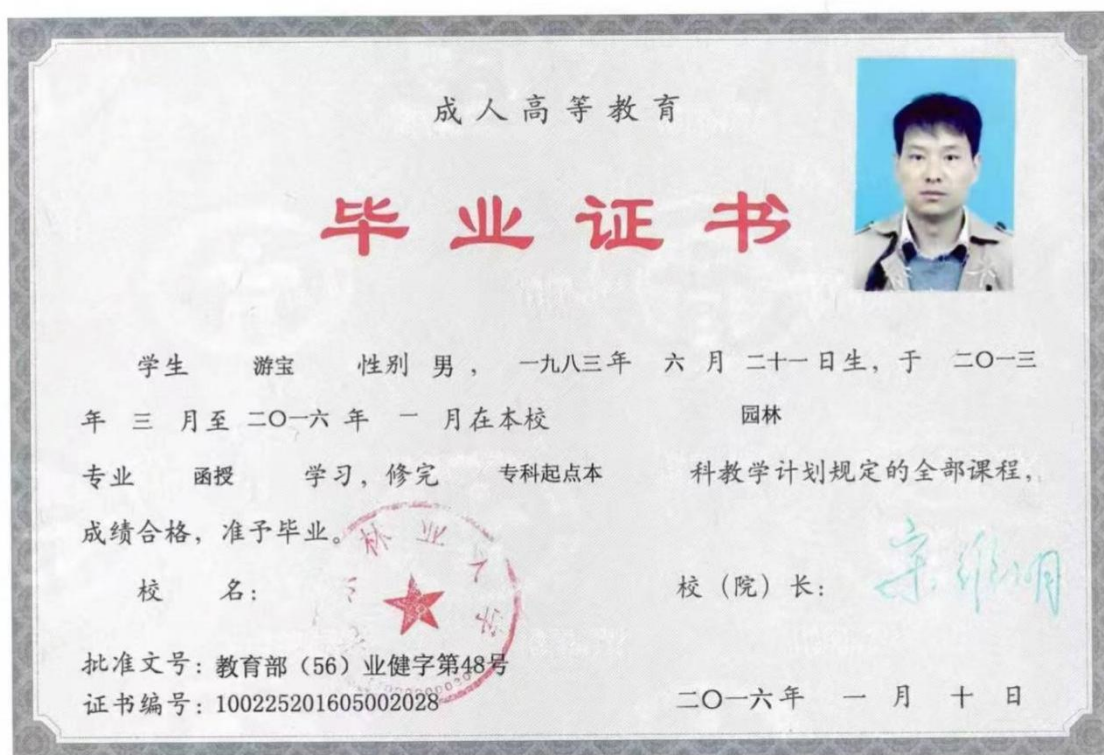 成人高等教育
毕业证书
学生 游宝 性别 男 ， 一九八三年 六 月 二十一日生，于 二〇一三
年 三 月至 二〇一六 年 一 月在本校 园林
专业 函授 学习，修完 专科起点本 科教学计划规定的全部课程，
成绩合格，准予毕业。
林业大学
校 名： 校（院）长： 宋维明
批准文号：教育部（56）业健字第48号
证书编号：100225201605002028 二〇一六年 一 月 十 日